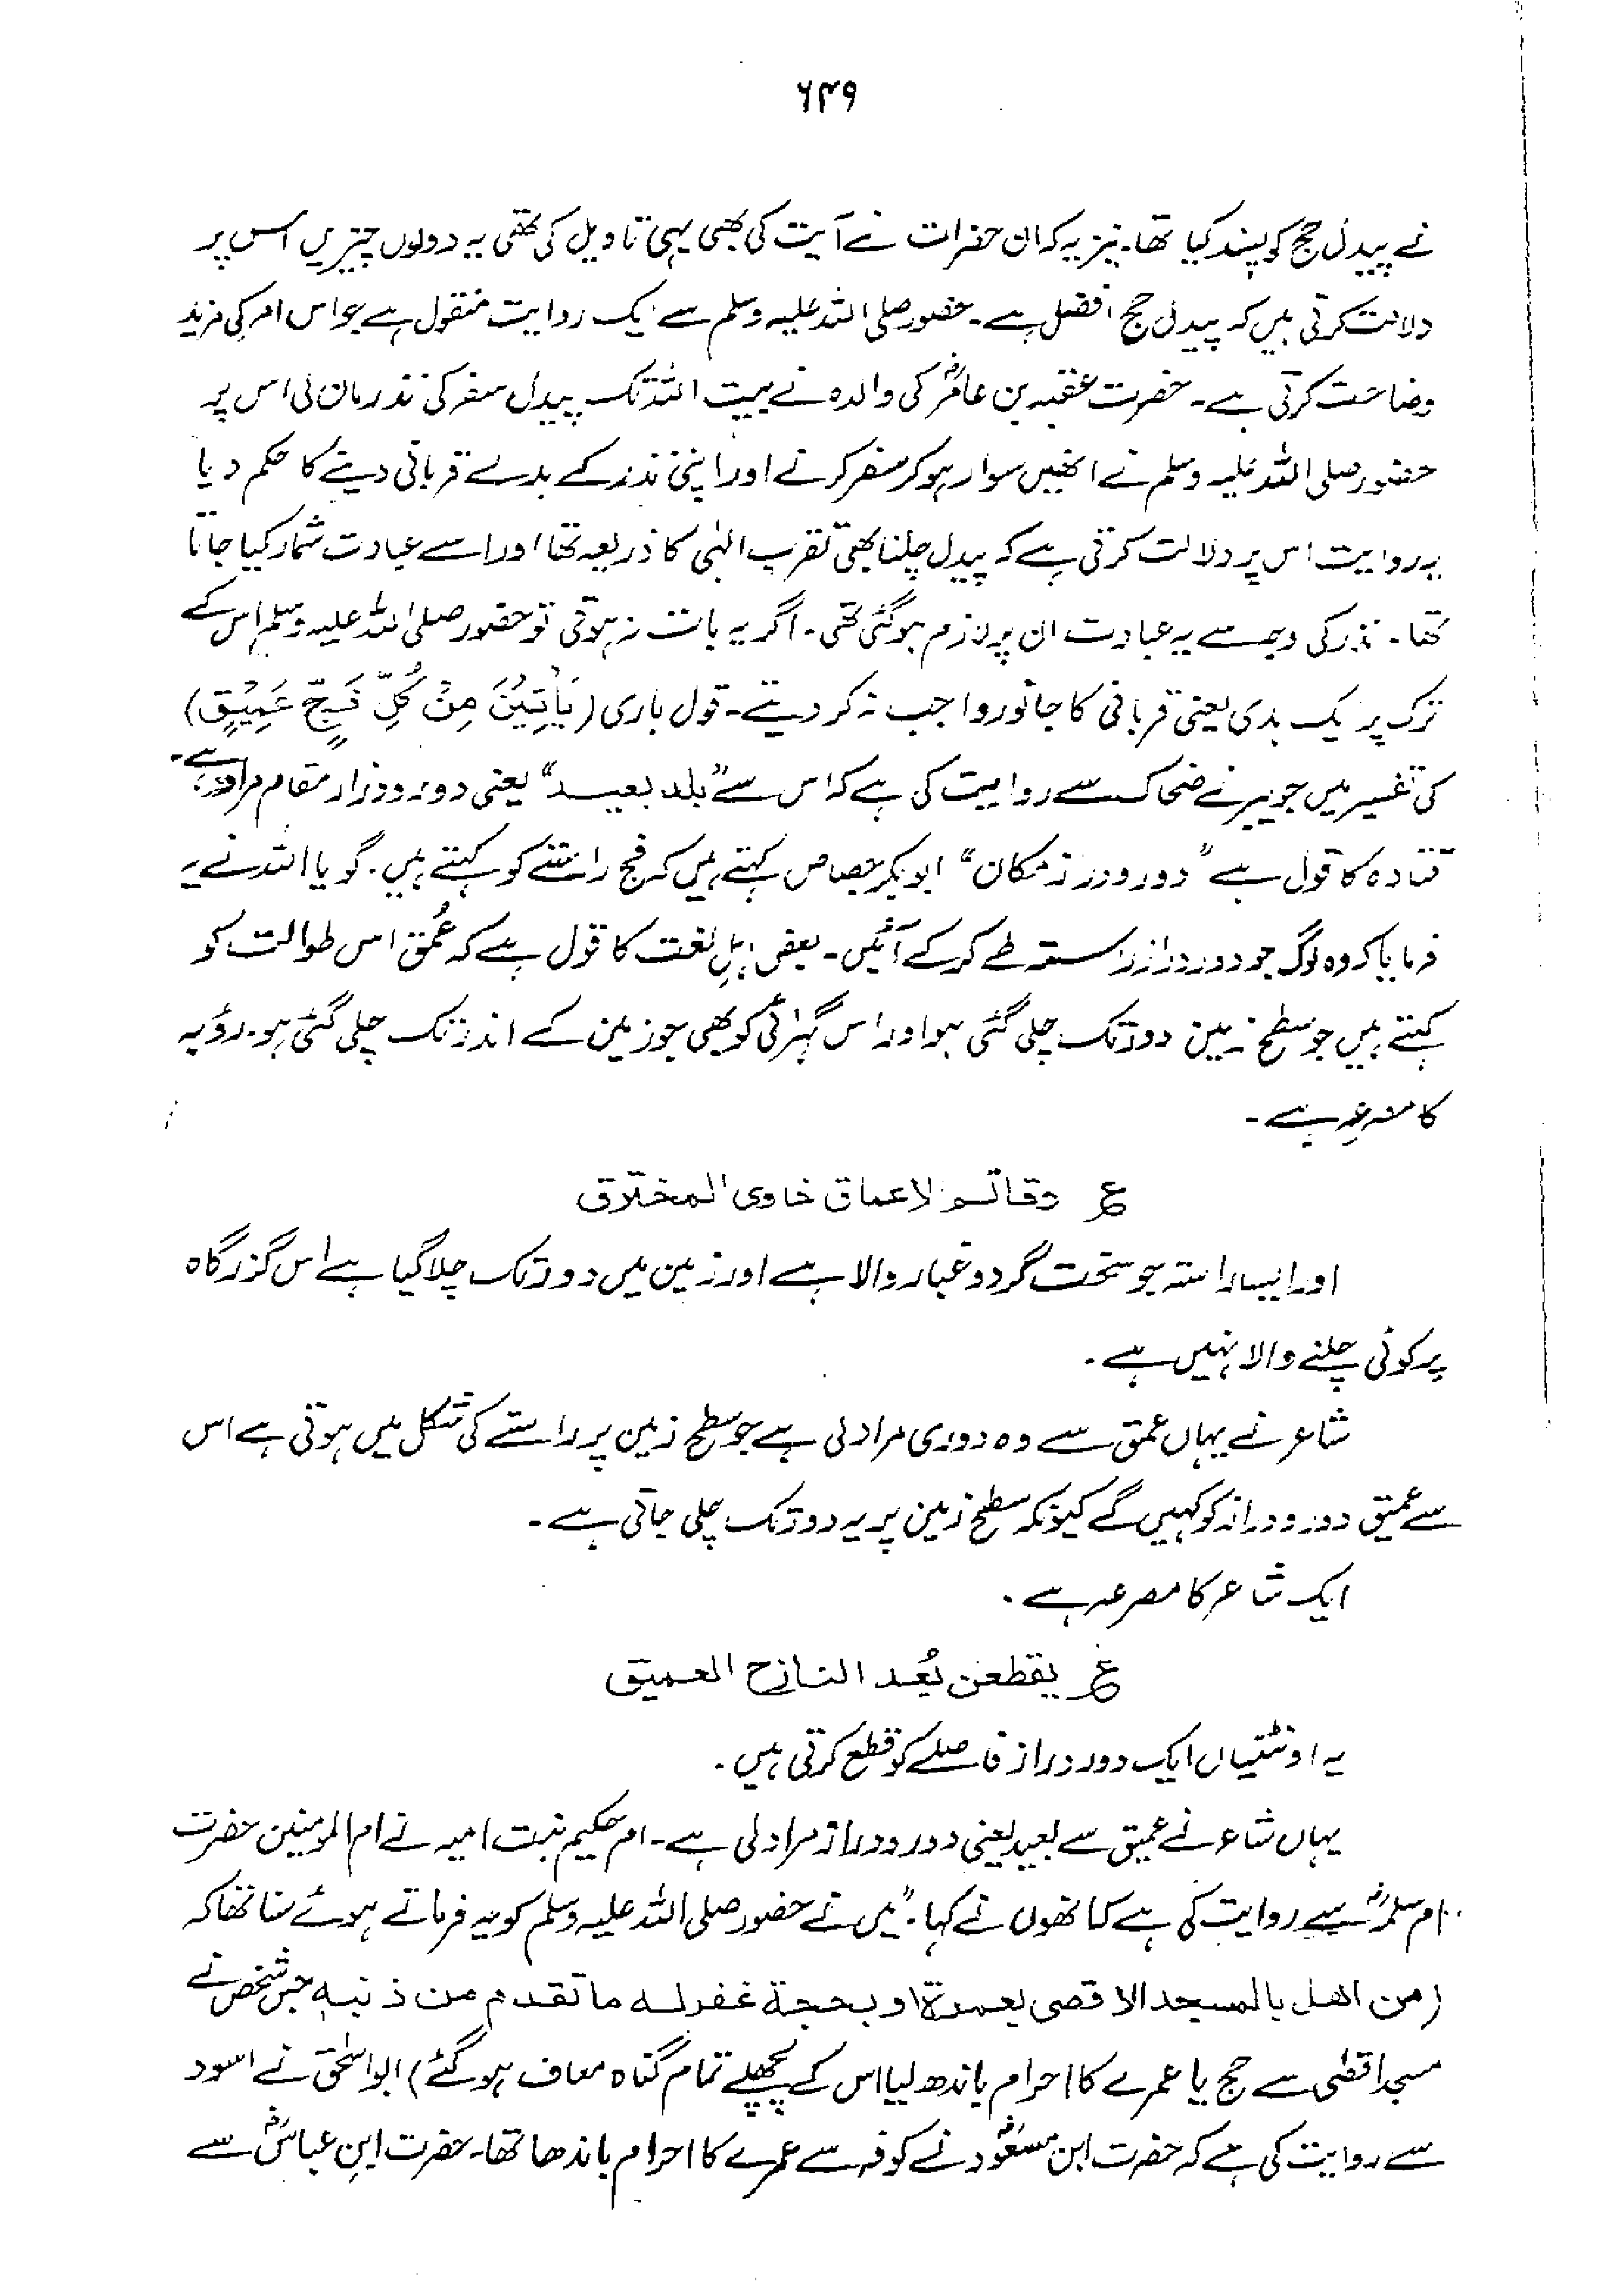 ۶۴۹
نے پیدل حج کو پسند کیا تھا۔ نیز یہ کہ ان حضرات نے آیت کی بھی یہی تاویل کی تھی یہ دونوں چیزیں اس پر
دلالت کرتی ہیں کہ پیدل حج افضل ہے۔ حضور صلی اللہ علیہ وسلم سے ایک روایت منقول ہے جو اس امر کی مزید
وضاحت کرتی ہے۔ حضرت عقبہ بن عامرؓ کی والدہ نے بیت اللہ تک پیدل سفر کی نذر مان لی اس پر
حضور صلی اللہ علیہ وسلم نے انھیں سوار ہو کر سفر کرنے اور اپنی نذر کے بدلے قربانی دینے کا حکم دیا
یہ روایت اس پر دلالت کرتی ہے کہ پیدل چلنا بھی تقرب الٰہی کا ذریعہ تھا اور اسے عبادت شمار کیا جاتا
تھا۔ نذر کی وجہ سے یہ عبادت ان پر لازم ہو گئی تھی۔ اگر یہ بات نہ ہوتی تو حضور صلی اللہ علیہ وسلم اس کے
ترک پر ایک ہدی یعنی قربانی کا جانور واجب نہ کر دیتے۔ قول باری (یَأْتِیْنَ مِنْ کُلِّ فَجٍّ عَمِیْقٍ)
کی تفسیر میں جویبر نے ضحاک سے روایت کی ہے کہ اس سے "بلد بعید" یعنی دور و دراز مقام مراد ہے۔
قتادہ کا قول ہے "دور و دراز مکان" ابو بکر جصاص کہتے ہیں کہ فج راستے کو کہتے ہیں۔ گویا اللہ نے یہ
فرمایا کہ وہ لوگ جو دور دراز راستہ طے کر کے آئیں۔ بعض اہلِ لغت کا قول ہے کہ عُمق اس طوالت کو
کہتے ہیں جو سطح زمین دور تک چلی گئی ہو اور اس گہرائی کو بھی جو زمین کے اندر تک چلی گئی ہو۔ رؤبہ
کا مصرعہ ہے۔
ع وقاتم الاعماق خاوی المخترق
اور ایسا راستہ جو سخت گرد و غبار والا ہے اور زمین میں دور تک چلا گیا ہے اس گزرگاہ
پر کوئی چلنے والا نہیں ہے۔
شاعر نے یہاں عمق سے وہ دوری مراد لی ہے جو سطح زمین پر راستے کی شکل میں ہوتی ہے اس
سے عمیق دور و دراز کو کہیں گے کیونکہ سطح زمین پر یہ دور تک چلی جاتی ہے۔
ایک شاعر کا مصرعہ ہے۔
ع یقطعن بُعد النازح العمیق
یہ اونٹنیاں ایک دور دراز فاصلے کو قطع کرتی ہیں۔
یہاں شاعر نے عمیق سے بعید یعنی دور و دراز مراد لی ہے۔ ام حکیم بنت امیہ نے ام المومنین حضرت
ام سلمہؓ سے روایت کی ہے کہ انھوں نے کہا۔ "میں نے حضور صلی اللہ علیہ وسلم کو یہ فرماتے ہوئے سنا تھا کہ
(من اھل بالمسجد الاقصی بعمرة او بحجة غفر له ما تقدم من ذنبه جس شخص نے
مسجد اقصٰی سے حج یا عمرے کا احرام باندھ لیا اس کے پچھلے تمام گناہ معاف ہو گئے) ابو اسحٰق نے اسود
سے روایت کی ہے کہ حضرت ابن مسعودؓ نے کوفہ سے عمرے کا احرام باندھا تھا۔ حضرت ابنِ عباسؓ سے